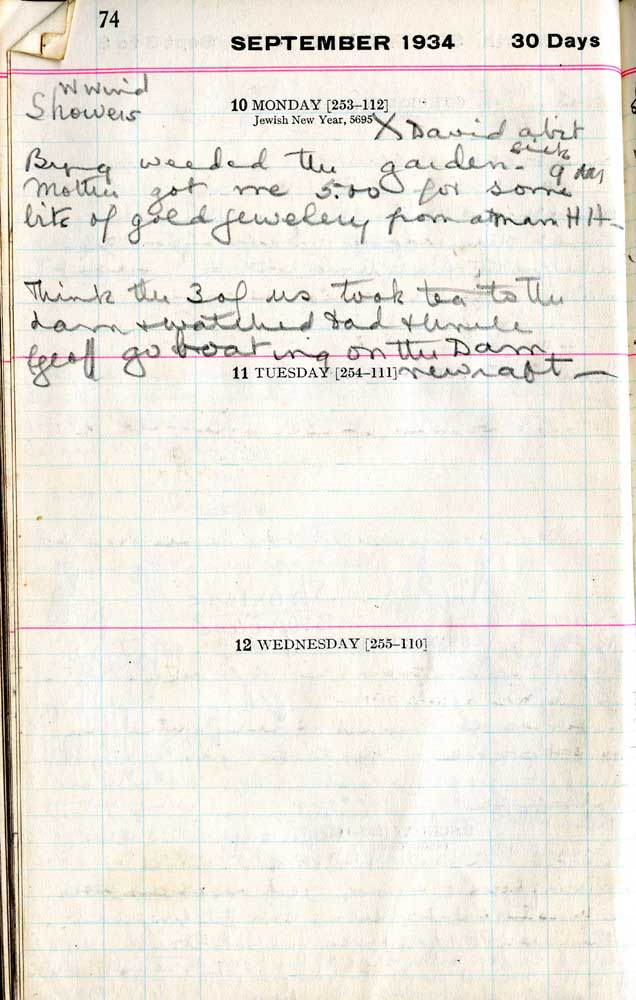 74
SEPTEMBER 1934 30 Days
W Wind
Showers
10 MONDAY [253–112]
Jewish New Year, 5695
X David a bit
sick
Byng weeded the garden. 9 day
Mother got me 5.00 for some
bits of gold jewelery from a man H H
Think the 3 of us took tea to the
dam + watched Dad + Uncle
Geoff go boating on the Dam
11 TUESDAY [254–111] new raft —
12 WEDNESDAY [255–110]